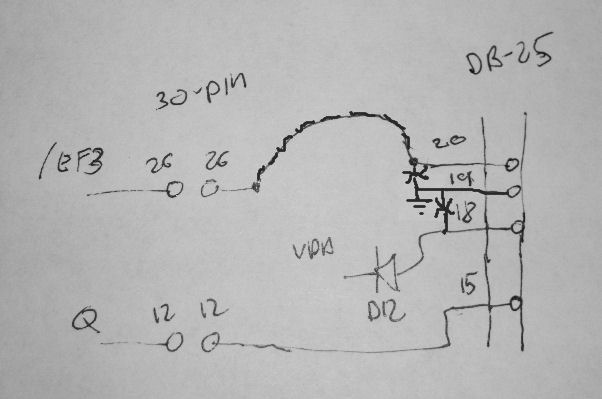 DB-25
30-PIN
/EF3 26 26 20
19
18
VDD
D12
15
Q 12 12